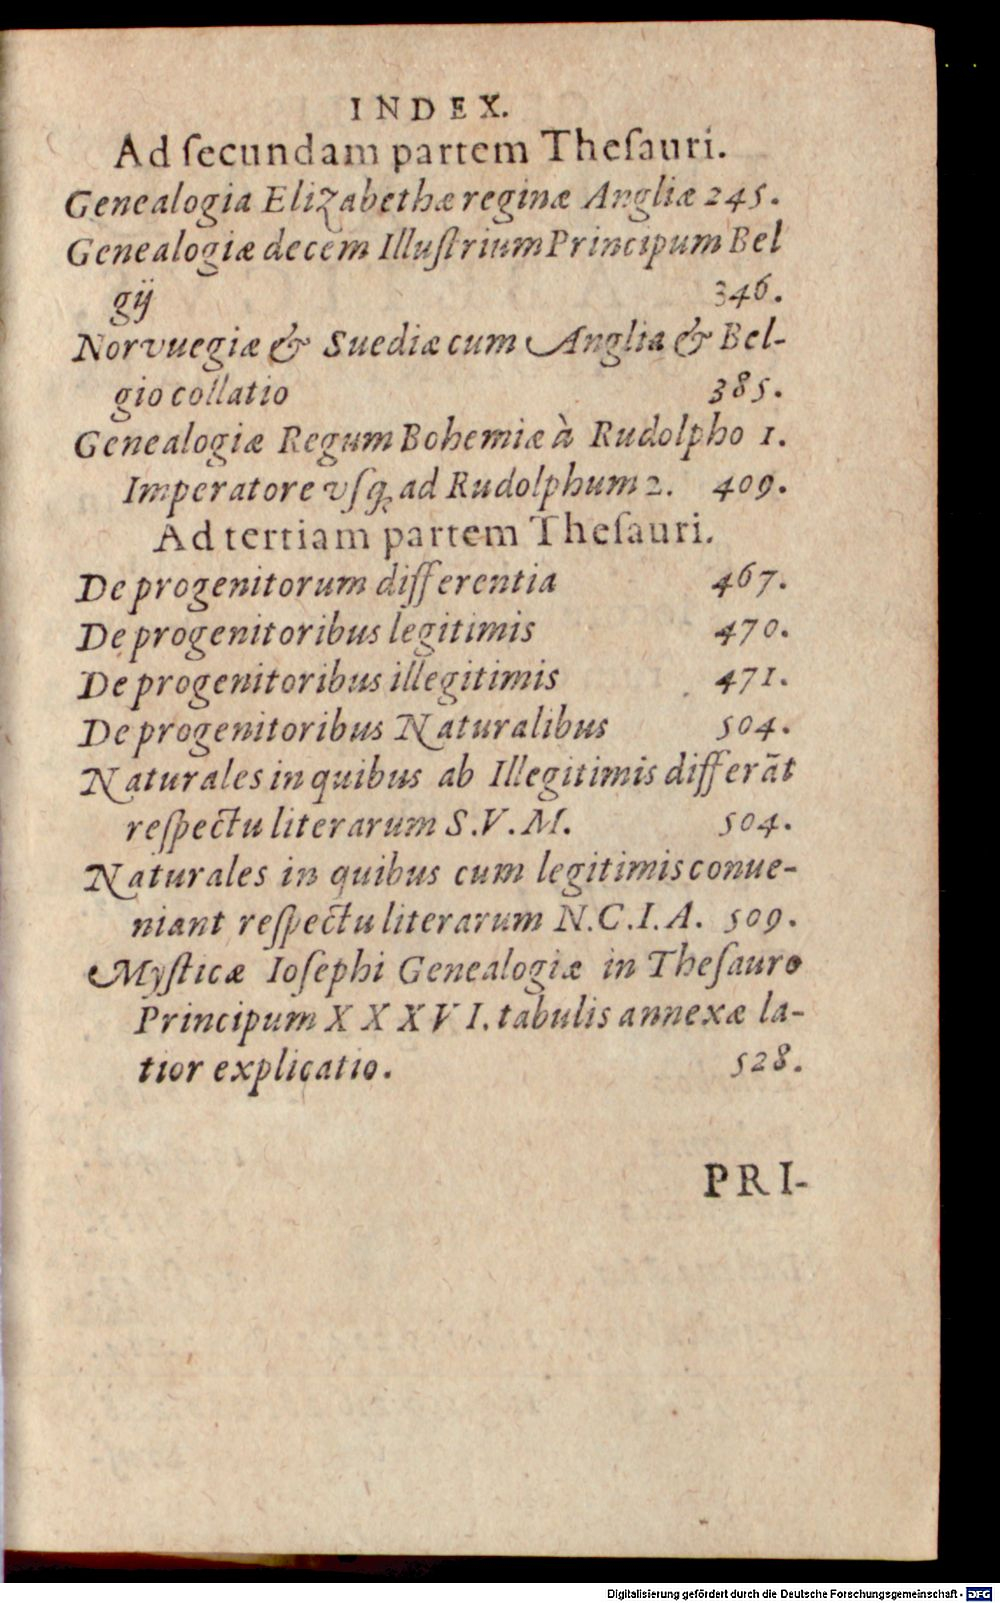 INDEX.
Ad ſecundam partem Theſauri.
Genealogia Elizabethæ reginæ Angliæ 245.
Genealogiæ decem Illuſtrium Principum Bel
gij 346.
Norvuegiæ & Suediæ cum Anglia & Bel-
gio collatio 385.
Genealogiæ Regum Bohemiæ à Rudolpho 1.
Imperatore vſq; ad Rudolphum 2. 409.
Ad tertiam partem Theſauri.
De progenitorum differentia 467.
De progenitoribus legitimis 470.
De progenitoribus illegitimis 471.
De progenitoribus Naturalibus 504.
Naturales in quibus ab Illegitimis differãt
reſpectu literarum S.V.M. 504.
Naturales in quibus cum legitimis conue-
niant reſpectu literarum N.C.I.A. 509.
Myſticæ Ioſephi Genealogiæ in Theſauro
Principum XXXVI. tabulis annexæ la-
tior explicatio. 528.
PRI-
Digitalisierung gefördert durch die Deutsche Forschungsgemeinschaft - DFG